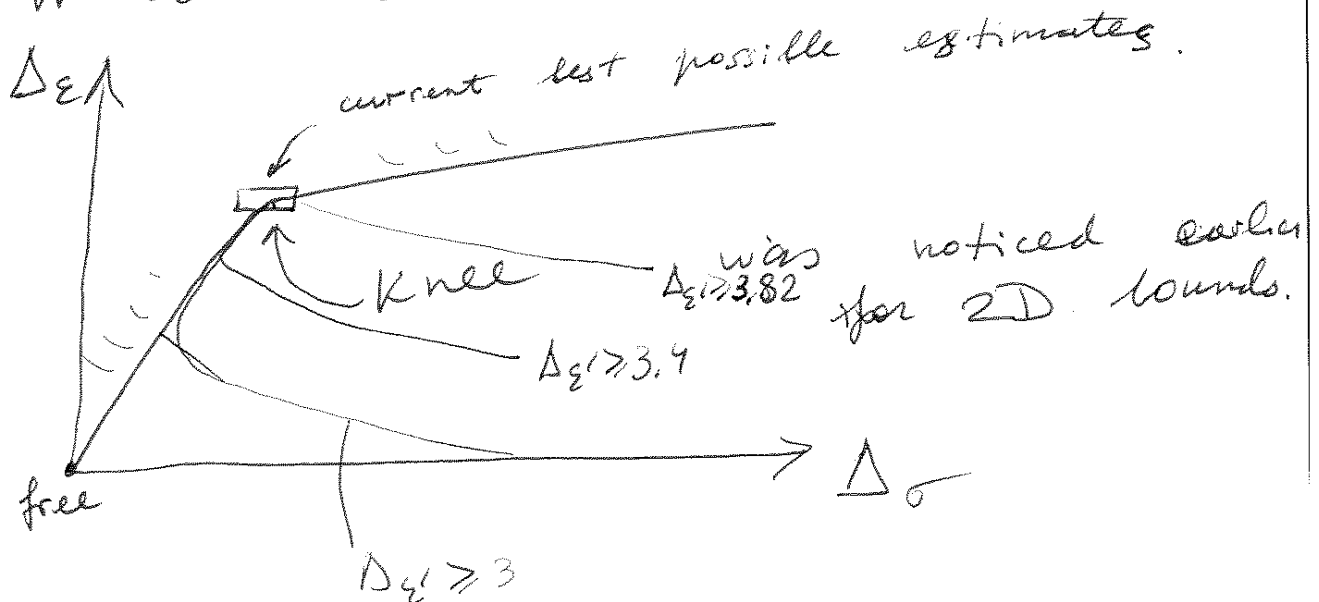 current best possible estimates.
Δε
Knee
was noticed earlier
for 2D bounds.
Δε' ≥ 3.82
Δε' ≥ 3.4
Δσ
free
Δε' ≥ 3